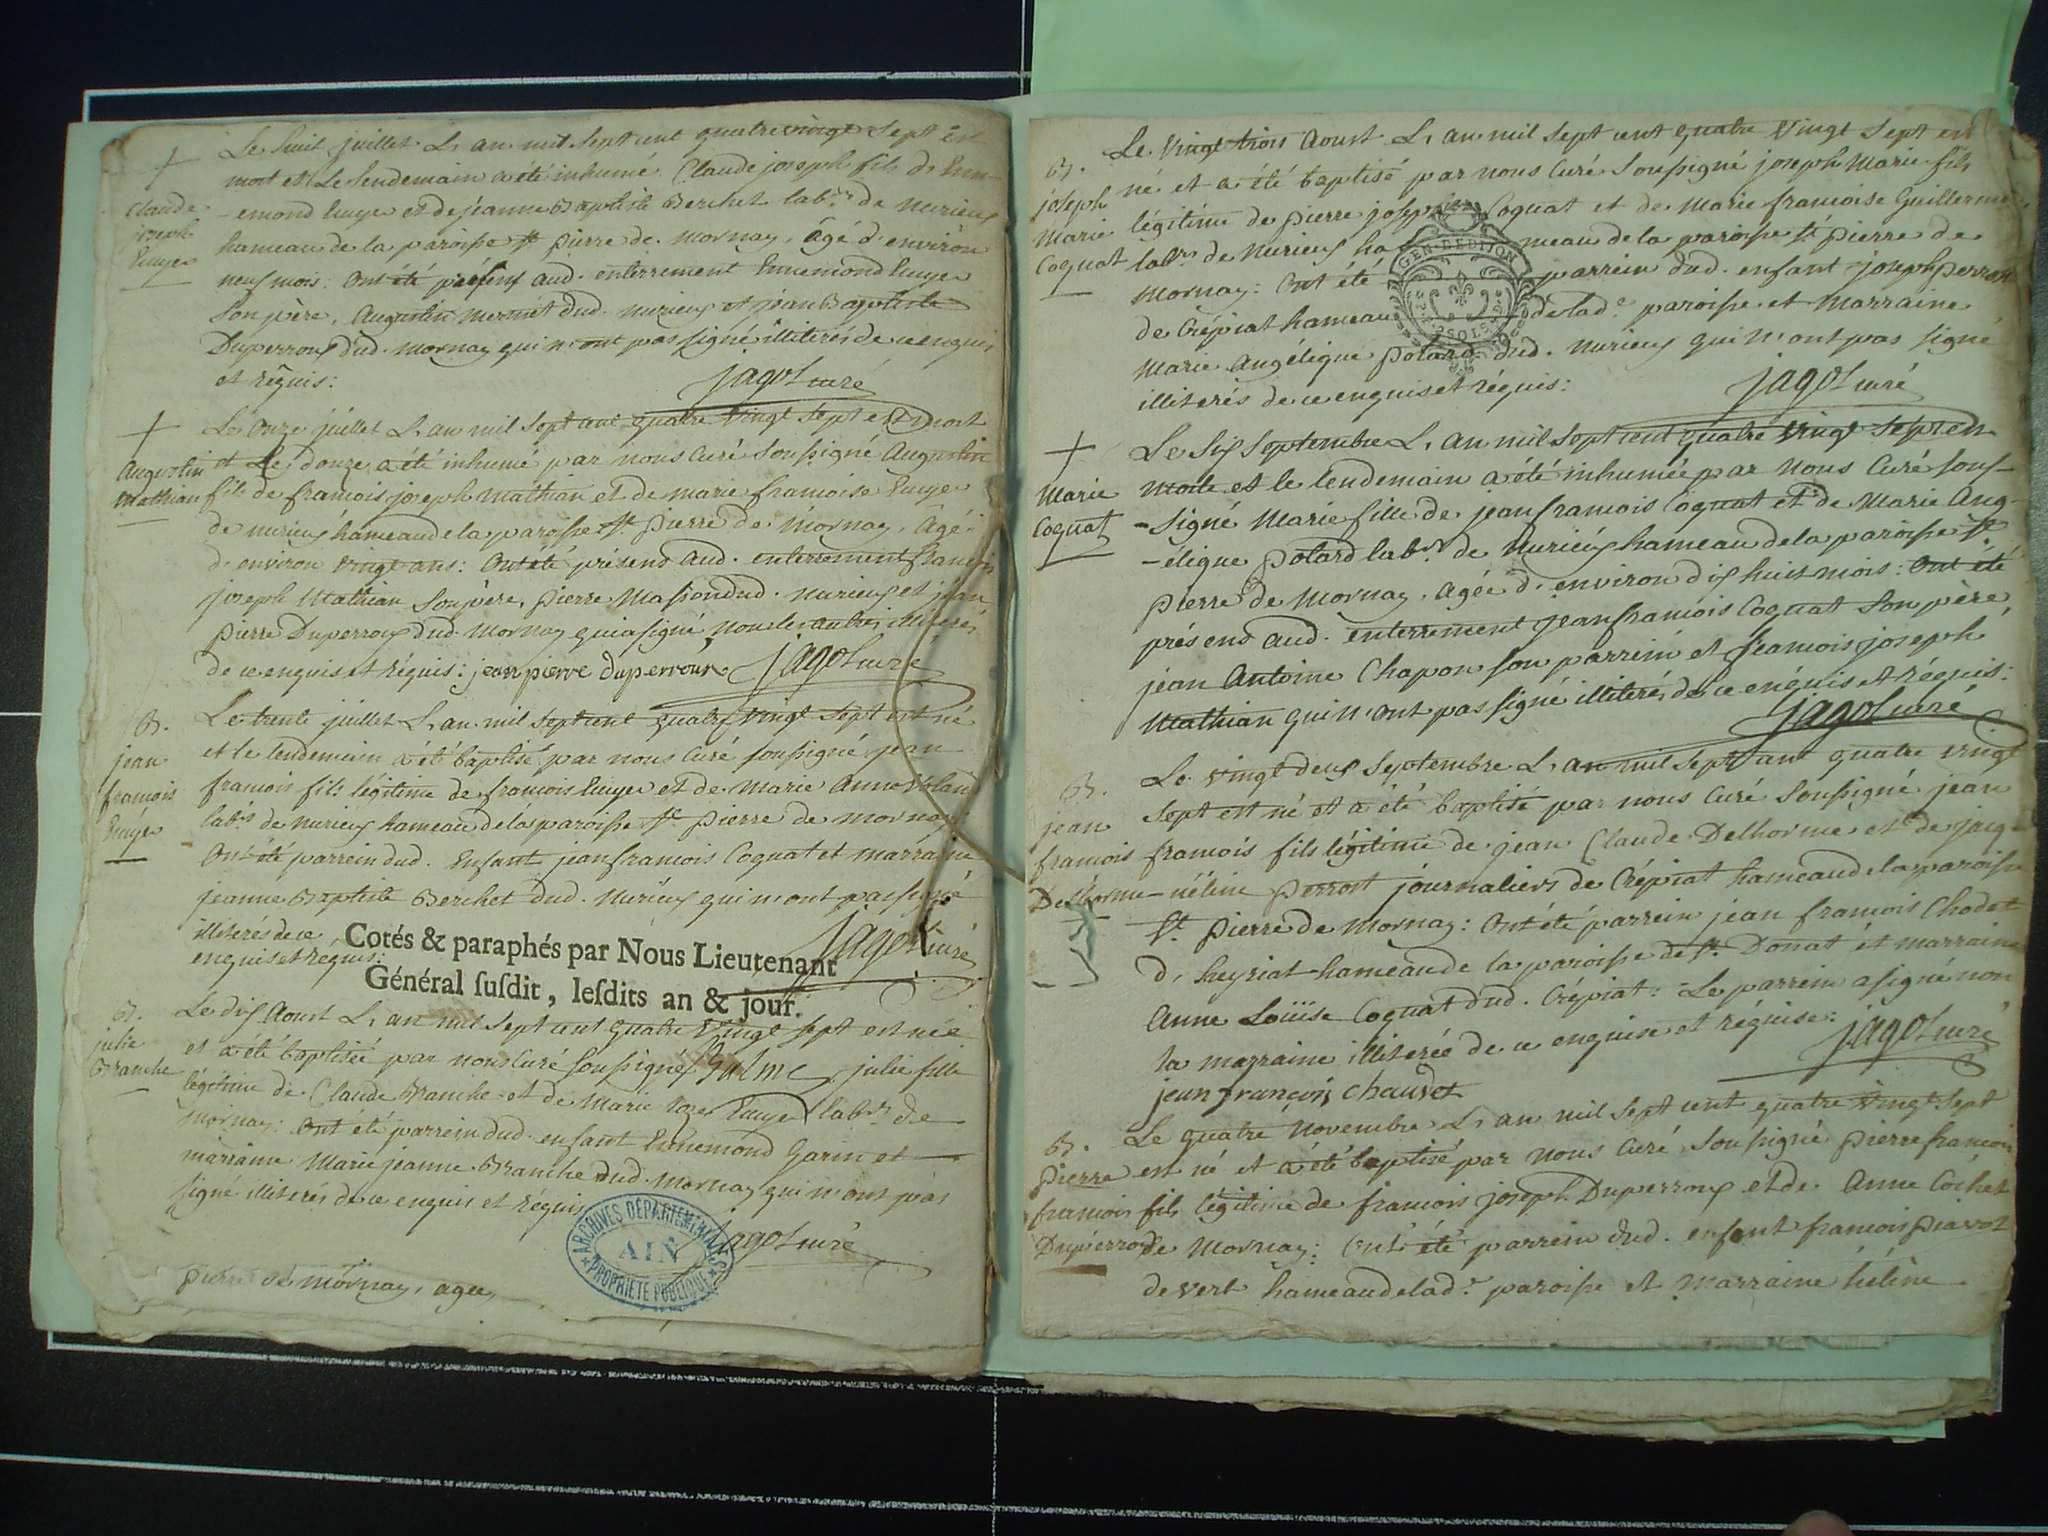 Le huit juillet L'an mil sept cent quatre vingt sept est
mort et Le lendemain a été inhumé Claude joseph fils d'Enn-
-emond Euyer et de jeanne Baptiste Berchet lab.rs de Nurieux
hameau de la paroisse st pierre de Mornay, âgé d'environ
neuf mois: Ont été présens aud. enterrement Ennemond Euyer
Son père, Augustin Mermet dud. Nurieux et jean Baptiste
Duperroux dud. Mornay qui n'ont pas signé illiterés de ce enquis
et réquis:
jagot curé
+
Claude
joseph
Euyer
Le Onze juillet L'an mil sept cent quatre vingt sept est mort
et Le douze a été inhumé par nous Curé soussigné Augustin
fils de francois joseph Mathian et de marie francoise Euyer
de nurieux hameau de la paroisse st. pierre de Mornay, Agé
d'environ vingt ans: Ont été présens aud. enterrement francois
joseph Mathian Son père, pierre Massion dud. nurieux et jean
pierre Duperroux dud. Mornay qui a signé, non les autres illiterés
de ce enquis et réquis: jean pierre duperroux jagot curé
+
Augustin
Mathian
Le trente juillet L'an mil sept cent quatre vingt sept est né
et le lendemain a été baptisé par nous Curé soussigné jean
francois fils légitime de francois Euyer et de Marie Anne
lab.rs de Nurieux hameau de la paroisse st pierre de mornay
Ont été parrein dud. Enfant jean francois Coquat et marraine
jeanne Baptiste Berchet dud. Nurieux qui n'ont pas signé
illiterés de ce
enquis et réquis:
jagot curé
B.
jean
francois
Euyer
Cotés & paraphés par Nous Lieutenant
Général susdit, lesdits an & jour.
Le dix Aoust L'an mil sept cent quatre vingt sept est née
et a été baptisée par nous Curé soussigné julie fille
légitime de Claude Branche et de Marie roze Euyer lab.rs de
mornay: Ont été parrein dud. enfant Ennemond Garin et
marraine Marie jeanne Branche dud. Mornay qui n'ont pas
signé illiterés de ce enquis et réquis
jagot curé
B.
julie
Branche
ARCHIVES DÉPARTEMENTALES
AIN
PROPRIÉTÉ PUBLIQUE
pierre de Mornay, agée
Le vingt trois Aoust L'an mil sept cent quatre vingt sept est
né et a été baptisé par nous Curé soussigné joseph Marie fils
légitime de pierre joseph Coquat et de Marie francoise Guillermi
lab.rs de Nurieux hameau de la paroisse st. pierre de
Mornay: Ont été parrein dud. enfant joseph perrost
de Crépiat hameau de lad.e paroisse et Marraine
Marie Angélique polard dud. Nurieux qui n'ont pas signé
illiterés de ce enquis et réquis:
jagot curé
B.
joseph
Marie
Coquat
GEN. DE DIJON
Le six septembre L'an mil sept cent quatre vingt sept est
morte et le lendemain a été inhumée par nous Curé sous-
-signé Marie fille de jean francois Coquat et de Marie Ang-
-élique polard lab.rs de Nurieux hameau de la paroisse st.
pierre de Mornay, agée d'environ dix huit mois: Ont été
présens aud. enterrement jean francois Coquat Son père,
jean Antoine Chapon son parrein et francois joseph
Mathian qui n'ont pas signé illiterés de ce enquis et réquis:
jagot curé
+
Marie
Coquat
Le vingt deux septembre L'an mil sept cent quatre vingt
sept est né et a été baptisé par nous Curé soussigné jean
francois fils légitime de jean Claude Delhorme et de jacq-
-néline perrost journaliers de Crépiat hameau de la paroisse
st. pierre de Mornay: Ont été parrein jean francois Chodet
d'heyriat hameau de la paroisse de st. Donat et marraine
Anne Loüise Coquat dud. Crépiat: Le parrein a signé non
la marraine illiterée de ce enquise et réquise:
jean françois chaudet
jagot curé
B.
jean
francois
Delhorme
Le quatre Novembre L'an mil sept cent quatre vingt sept
est né et a été baptisé par nous Curé soussigné pierre francois
fils légitime de francois joseph Duperroux et de Anne Cochet
de Mornay: Ont été parrein dud. enfant francois piavot
de vers hameau de lad.e paroisse et Marraine hélène
B.
pierre
francois
Duperroux